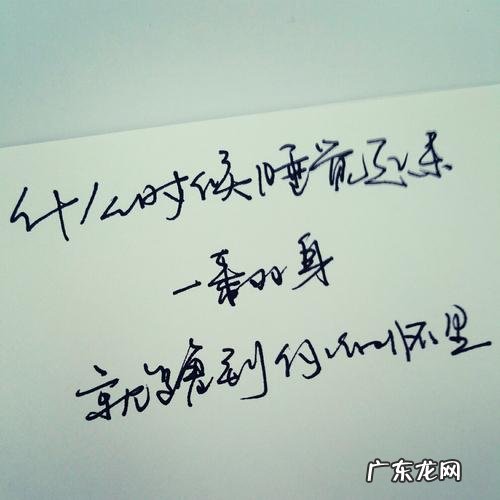 什么时候睡觉
一身
就到你的怀里
广东龙网